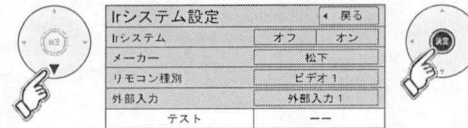 Irシステム設定 ◀ 戻る
Irシステム オフ オン
メーカー 松下
リモコン種別 ビデオ1
外部入力 外部入力1
テスト ーー
決定